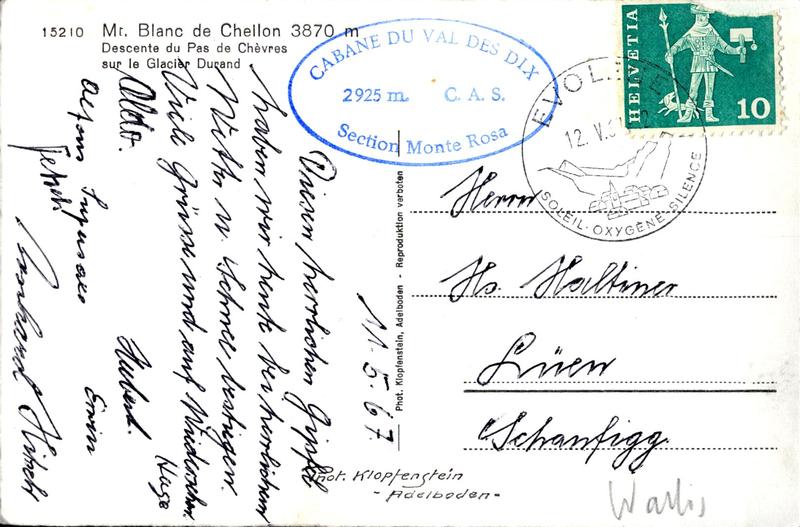 15210 Mt. Blanc de Cheilon 3870 m
Descente du Pas de Chèvres
sur le Glacier Durand
CABANE DU VAL DES DIX
2925 m. C. A. S.
Section Monte Rosa
HELVETIA
10
EVOLÈNE
12. V.
SOLEIL·OXYGÈNE·SILENCE
Diesen herrlichen Gipfel
haben wir heute bei herrlichem
Wetter u. Schnee bestiegen.
Viele Grüsse und auf Wiedersehn
Aldo.
Hubert
Hugo
Alfons
Erwin
11-5-67
Phot. Klopfenstein, Adelboden - Reproduktion verboten
Herrn
Hs. Haltiner
Lüen
Schanfigg.
Phot. Klopfenstein
- Adelboden -
Wallis